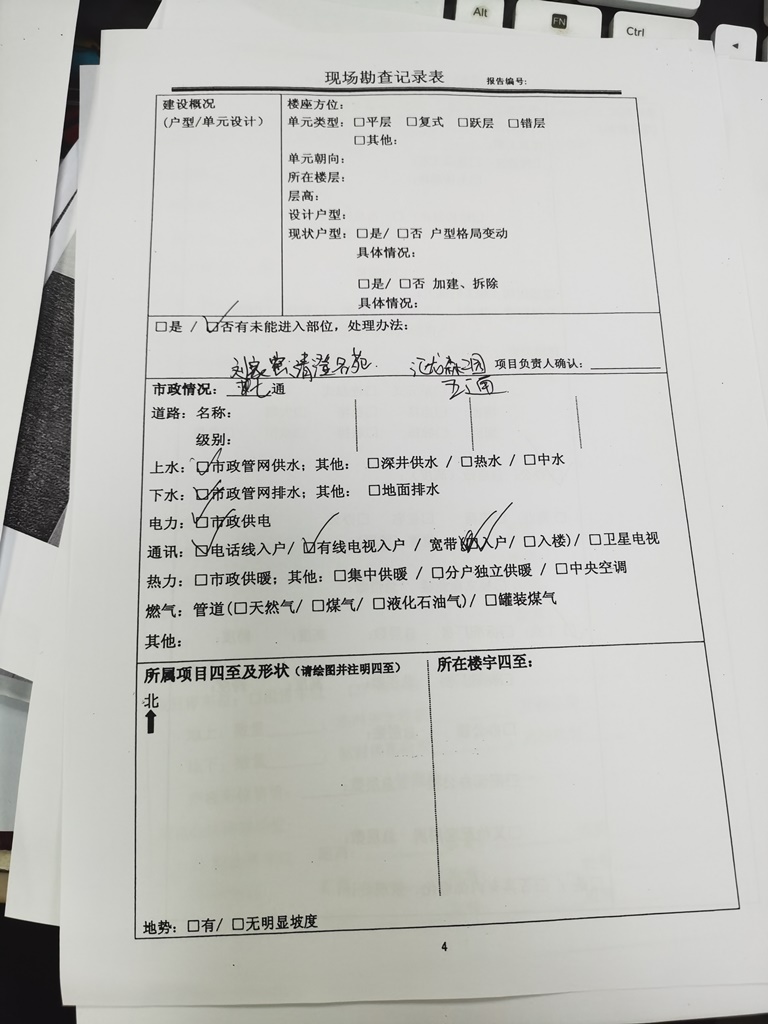 Alt
FN
Ctrl
现场勘查记录表 报告编号:
建设概况
(户型/单元设计)
楼座方位:
单元类型: □平层 □复式 □跃层 □错层
□其他:
单元朝向:
所在楼层:
层高:
设计户型:
现状户型: □是/ □否 户型格局变动
具体情况:
□是/ □否 加建、拆除
具体情况:
□是 / ☑否有未能进入部位, 处理办法:
刘家窑:清澄名苑
项目负责人确认:
市政情况: 七 通
道路: 名称:
级别:
上水: ☑市政管网供水; 其他: □深井供水 / □热水 / □中水
下水: ☑市政管网排水; 其他: □地面排水
电力: ☑市政供电
通讯: ☑电话线入户/ ☑有线电视入户 / 宽带(☑入户/ □入楼)/ □卫星电视
热力: □市政供暖; 其他: □集中供暖 / □分户独立供暖 / □中央空调
燃气: 管道(□天然气/ □煤气/ □液化石油气)/ □罐装煤气
其他:
所属项目四至及形状 (请绘图并注明四至)
北
所在楼宇四至:
地势: □有/ □无明显坡度
4